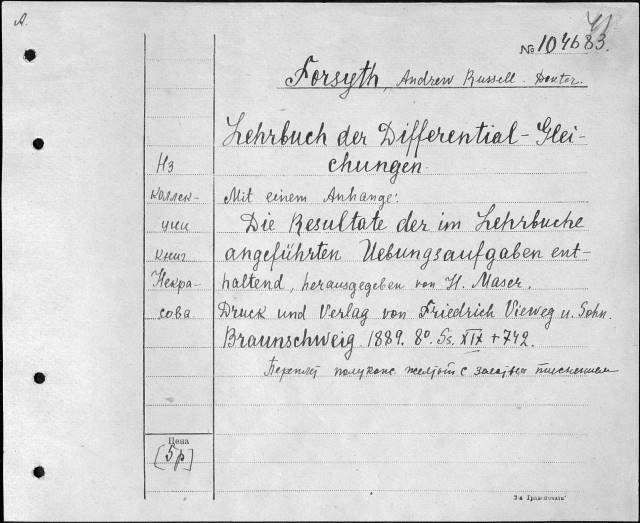 A.
41
№ 104683.
Forsyth, Andrew Russell. Doktor.
Lehrbuch der Differential-Glei-
chungen.
Mit einem Anhange:
Die Resultate der im Lehrbuche
angeführten Uebungsaufgaben ent-
haltend, herausgegeben von H. Maser.
Druck und Verlag von Friedrich Vieweg u. Sohn.
Braunschweig. 1889. 8°. Ss. XIX + 742.
Переплёт полукож. желтый с тиснением
Из
коллек-
ции
книг
Некра-
сова
Цена
[5р]